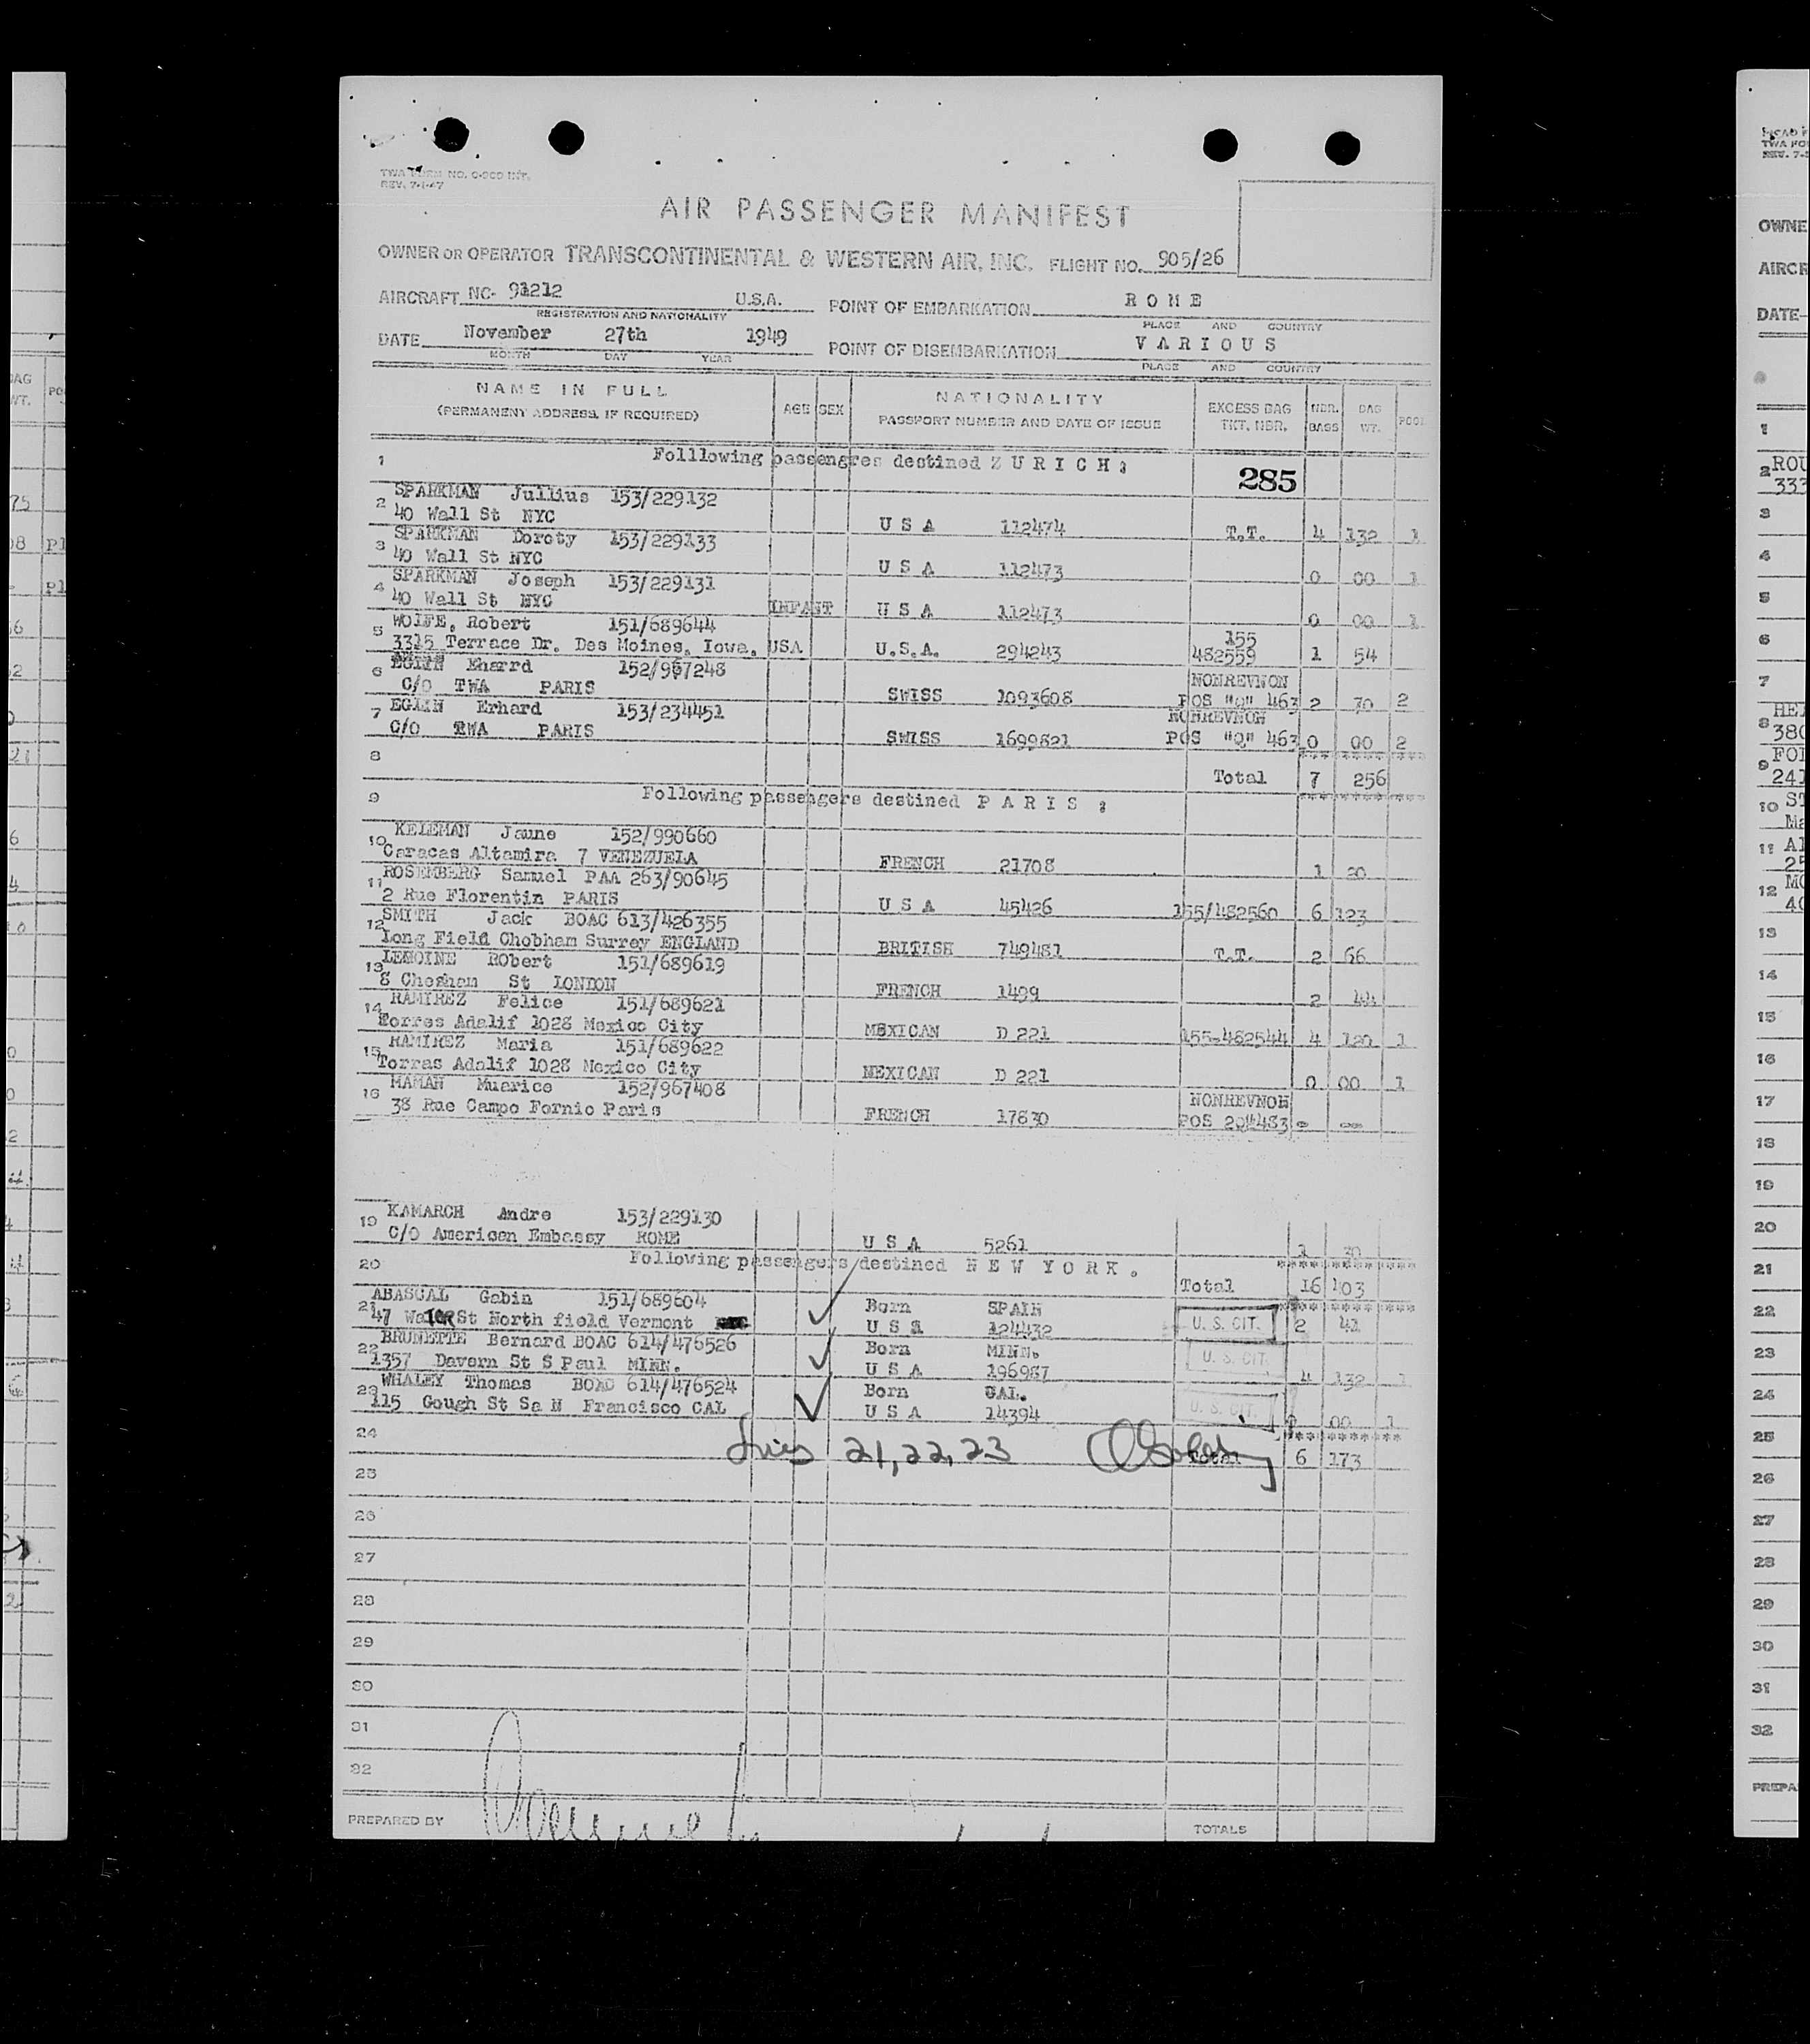 TWA FORM NO. O-90D INT.
REV. 7-1-47
AIR PASSENGER MANIFEST
OWNER OR OPERATOR TRANSCONTINENTAL & WESTERN AIR, INC. FLIGHT NO. 905/26
AIRCRAFT NC- 91212 U.S.A. POINT OF EMBARKATION R O M E
REGISTRATION AND NATIONALITY PLACE AND COUNTRY
DATE November 27th 1949 POINT OF DISEMBARKATION V A R I O U S
MONTH DAY YEAR PLACE AND COUNTRY
NAME IN FULL AGE SEX NATIONALITY EXCESS BAG NBR. BAG POOL
(PERMANENT ADDRESS, IF REQUIRED) PASSPORT NUMBER AND DATE OF ISSUE TKT. NBR. BAGS WT.
1 Folllowing passengres destined Z U R I C H :
285
SPARKMAN Jullius 153/229132
2 40 Wall St NYC U S A 112474 T.T. 4 132 1
SPARKMAN Doroty 153/229133
3 40 Wall St NYC U S A 112473 0 00 1
SPARKMAN Joseph 153/229131
4 40 Wall St NYC INFANT U S A 112473 0 00 1
WOLFE, Robert 151/689644 155
5 3315 Terrace Dr. Des Moines, Iowa, USA U.S.A. 294243 482559 1 54
EGLIN Eharrd 152/967248 NONREVNON
6 C/O TWA PARIS SWISS 1093608 POS "Q" 463 2 70 2
EGLIN Erhard 153/234451 NONREVNOH
7 C/O TWA PARIS SWISS 1699821 POS "Q" 463 0 00 2
8 Total 7 256
9 Following passengers destined P A R I S :
KELEMAN Jaune 152/990660
10 Caracas Altamira 7 VENEZUELA FRENCH 21708 1 20
ROSEMBERG Samuel PAA 263/90645
11 2 Rue Florentin PARIS U S A 45426 155/482560 6 123
SMITH Jack BOAC 613/426355
12 Long Field Chobham Surrey ENGLAND BRITISH 749481 T.T. 2 66
LEMOINE RObert 151/689619
13 8 Chesham St LONDON FRENCH 1499 2 44
RAMIREZ Felice 151/689621
14 Torres Adalif 1028 Mexico City MEXICAN D 221 155-482544 4 120 1
RAMIREZ Maria 151/689622
15 Torras Adalif 1028 Mexico City MEXICAN D 221 0 00 1
MAMAN Muarice 152/967408 NONREVNOH
16 38 Rue Campo Fornio Paris FRENCH 17830 POS 20"483
KAMARCH Andre 153/229130
19 C/O American Embassy ROME U S A 5261 1 30
20 Following passengers destined N E W YORK. Total 16 403
ABASCAL Gabin 151/689604 Born SPAIN
21 47 WaTER St North field Vermont U S A 124432 U. S. CIT. 2 41
BRUNETTE Bernard BOAC 614/476526 Born MINN.
22 1357 Davern St S Paul MINN. U S A 196987 U. S. CIT. 4 132 1
WHALEY Thomas BOAC 614/476524 Born CAL.
23 115 Gough St Sa N Francisco CAL U S A 14394 U. S. CIT. 0 00 1
24 Lines 21, 22, 23 Total 6 173
25
26
27
28
29
30
31
32
PREPARED BY TOTALS